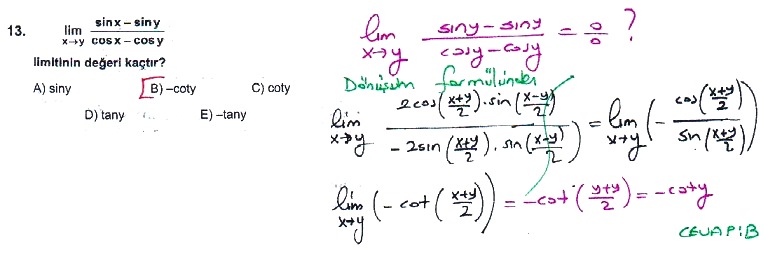 13. lim x→y (sinx – siny)/(cosx – cosy)
limitinin değeri kaçtır?
A) siny B) –coty C) coty
D) tany E) –tany
lim x→y (siny – siny)/(cosy – cosy) = 0/0 ?
Dönüşüm formülünden
lim x→y (2cos((x+y)/2).sin((x-y)/2))/(-2sin((x+y)/2).sin((x-y)/2)) = lim x→y (-cos((x+y)/2)/sin((x+y)/2))
lim x→y (-cot((x+y)/2)) = -cot((y+y)/2) = -coty
CEVAP:B